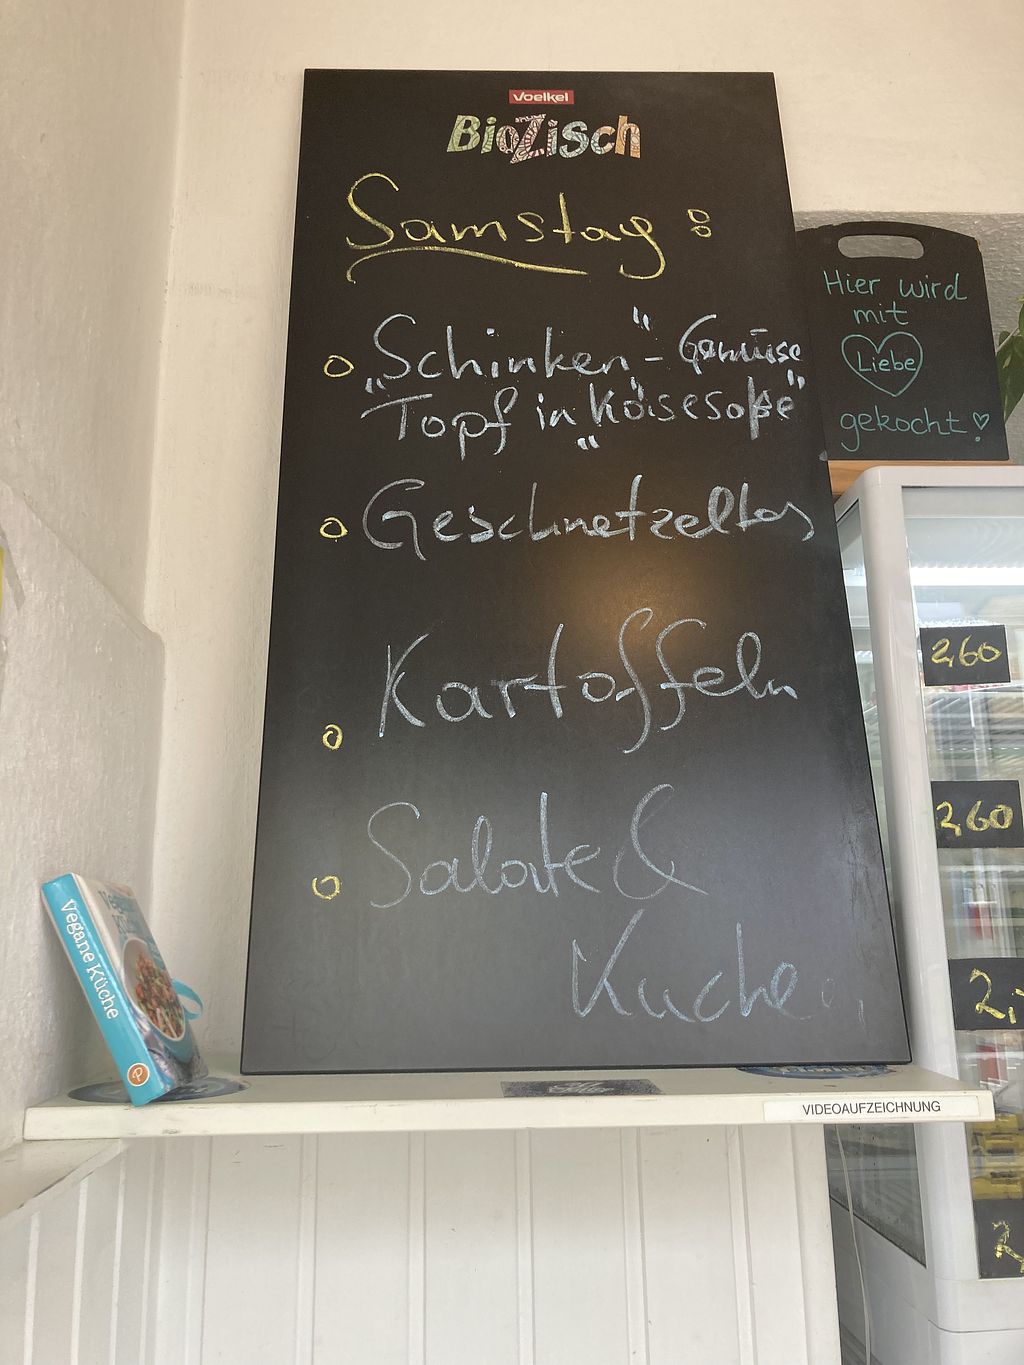 Voelkel
BioZisch
Samstag:
„Schinken"-Gemüse
Topf in „Käsesoße"
Geschnetzeltes
Kartoffeln
Salate &
Kuchen
Hier wird
mit
Liebe
gekocht!
2,60
2,60
2,
2,
Vegane Küche
VIDEOAUFZEICHNUNG